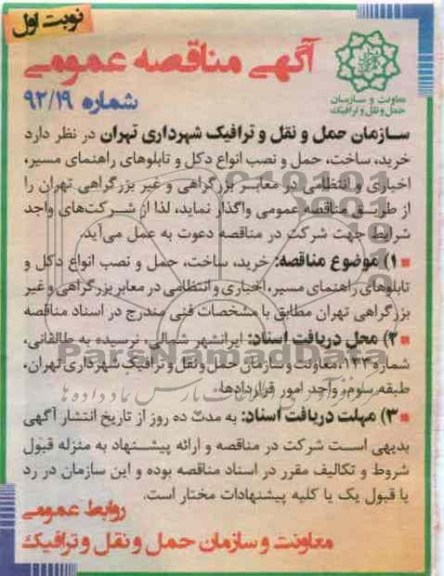 نوبت اول
معاونت و سازمان
حمل و نقل و ترافیک
آگهی مناقصه عمومی
شماره ۹۲/۱۹
سازمان حمل و نقل و ترافیک شهرداری تهران در نظر دارد
خرید، ساخت، حمل و نصب انواع دکل و تابلوهای راهنمای مسیر،
اخباری و انتظامی در معابر بزرگراهی و غیر بزرگراهی تهران را
از طریق مناقصه عمومی واگذار نماید، لذا از شرکت‌های واجد
شرایط جهت شرکت در مناقصه دعوت به عمل می‌آید.
۱) موضوع مناقصه: خرید، ساخت، حمل و نصب انواع دکل و
تابلوهای راهنمای مسیر، اخباری و انتظامی در معابر بزرگراهی و غیر
بزرگراهی تهران مطابق با مشخصات فنی مندرج در اسناد مناقصه
۲) محل دریافت اسناد: ایرانشهر شمالی، نرسیده به طالقانی،
شماره ۱۴۳، معاونت و سازمان حمل و نقل و ترافیک شهرداری تهران،
طبقه سوم، واحد امور قراردادها.
ParsNamadData
۳) مهلت دریافت اسناد: به مدت ده روز از تاریخ انتشار آگهی
بدیهی است شرکت در مناقصه و ارائه پیشنهاد به منزله قبول
شروط و تکالیف مقرر در اسناد مناقصه بوده و این سازمان در رد
یا قبول یک یا کلیه پیشنهادات مختار است.
روابط عمومی
معاونت و سازمان حمل و نقل و ترافیک